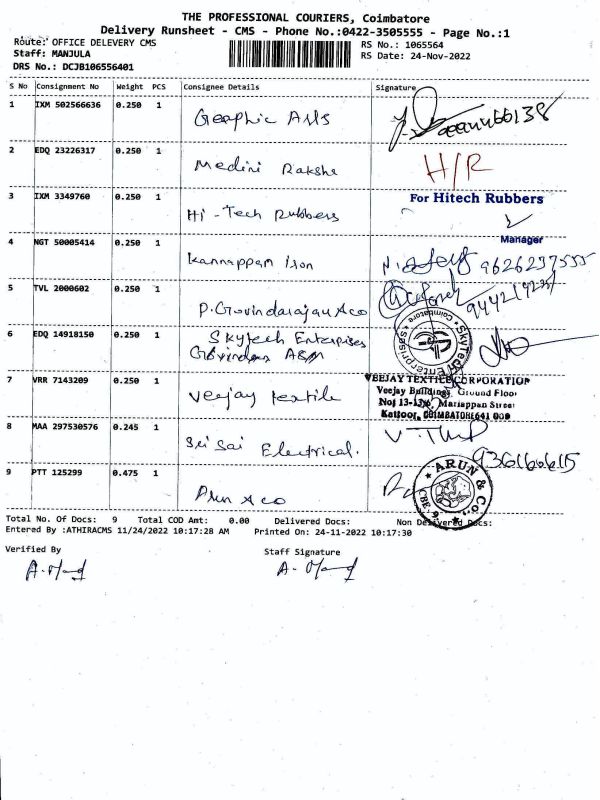 THE PROFESSIONAL COURIERS, Coimbatore
Delivery Runsheet - CMS - Phone No.:0422-3505555 - Page No.:1
Route: OFFICE DELEVERY CMS
RS No.: 1065564
Staff: MANJULA
RS Date: 24-Nov-2022
DRS No.: DCJB106556401
S No Consignment No Weight PCS Consignee Details Signature
1 IXM 502566636 0.250 1 Geaphic Arts
2 EDQ 23226317 0.250 1 Medini Rakshe H/R
3 IXM 3349760 0.250 1 Hi-Tech Rubbers For Hitech Rubbers
Manager
4 NGT 50005414 0.250 1 Kannappam Iron 9626237555
5 TVL 2000602 0.250 1 P.Govindarajan & Co
6 EDQ 14918150 0.250 1 Skytech Enterprises
Govindan
SkyTech Enterprises
Coimbatore
7 VRR 7143209 0.250 1 Veejay textile
VEEJAY TEXTILE CORPORATION
Veejay Buildings, Ground Floor
Mariappan Street
Kattoor, COIMBATORE 641 009
8 MAA 297530576 0.245 1 Sri Sai Electrical.
9 PTT 125299 0.475 1 Arun & Co
ARUN & Co.
CBE-9
Total No. Of Docs: 9 Total COD Amt: 0.00 Delivered Docs: Non Delivered Docs:
Entered By :ATHIRACMS 11/24/2022 10:17:28 AM Printed On: 24-11-2022 10:17:30
Verified By Staff Signature